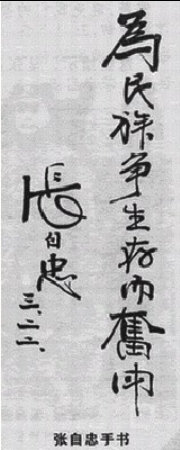 為民族争生存而奮鬥
張自忠
三、二、二、
张自忠手书